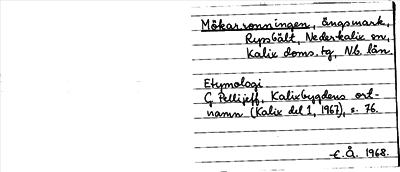 Mökarsonningen, ängsmark,
Rypsbält, Nederkalix sn,
Kalix doms. tg, Nb. län.
Etymologi
G Pellijeff, Kalixbygdens ort-
namn (Kalix del 1, 1967), s. 76.
E. Å. 1968.